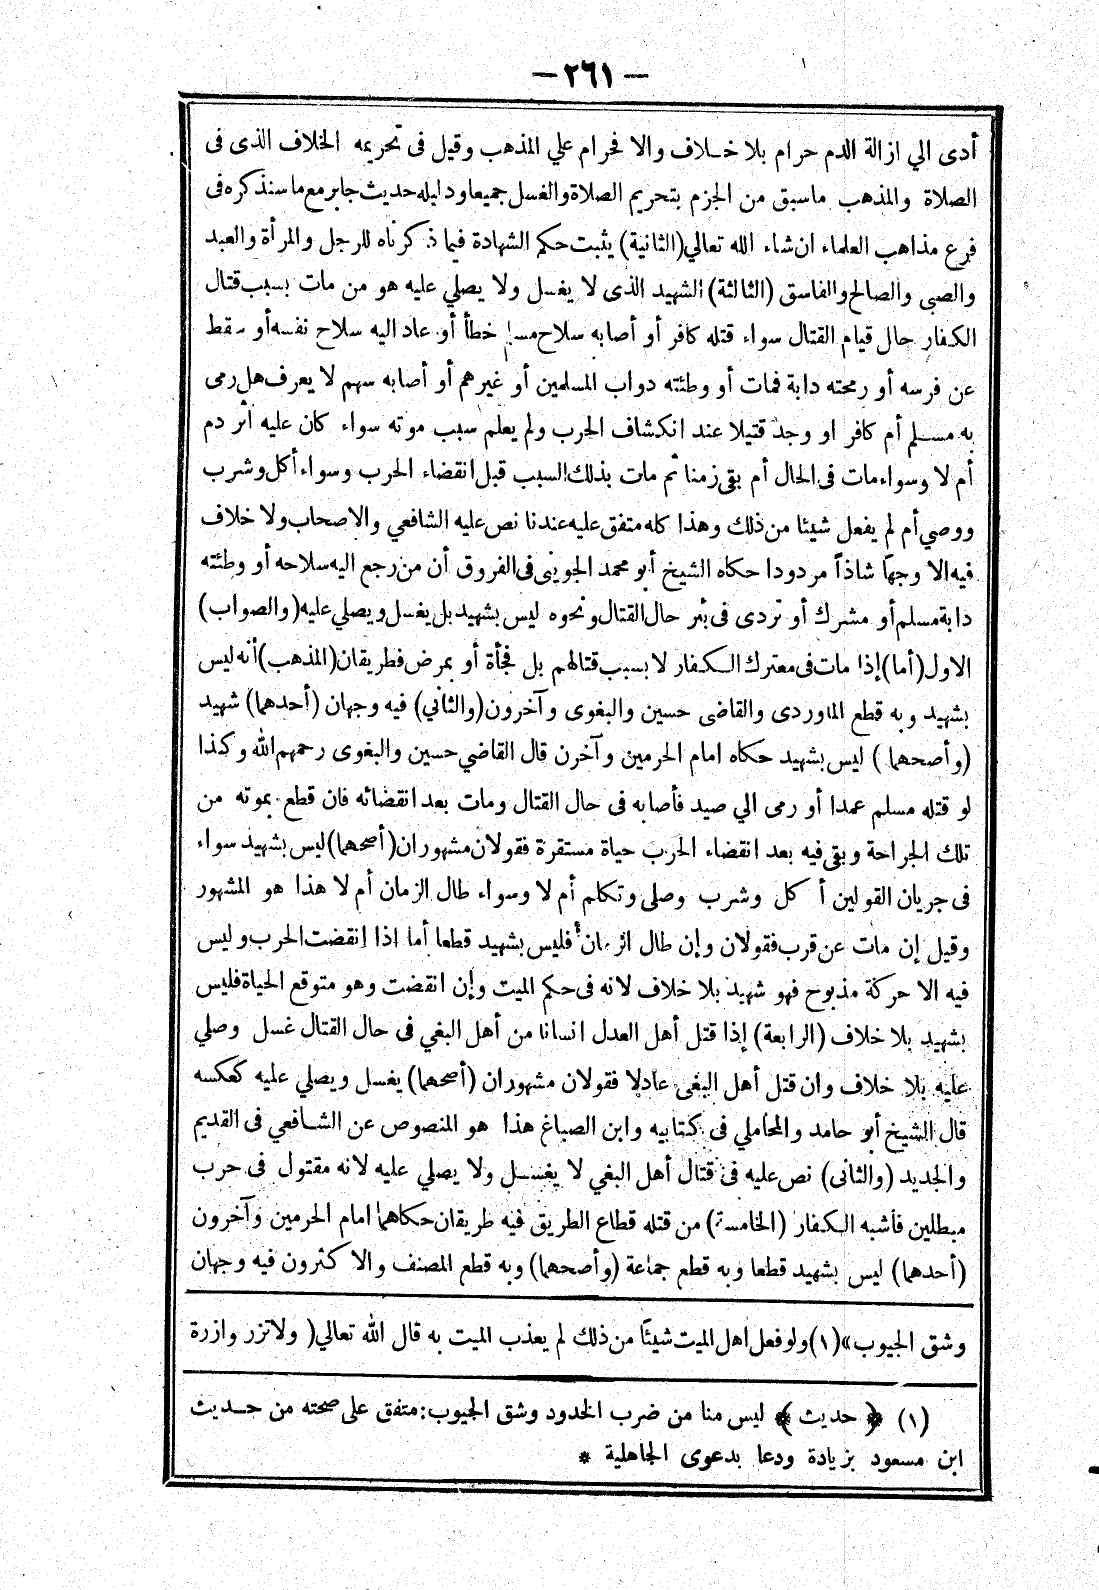 — ٢٦١ —
أدى الي ازالة الدم حرام بلا خلاف والا فحرام علي المذهب وقيل فى تحريمه الخلاف الذى فى
الصلاة والمذهب ماسبق من الجزم بتحريم الصلاة والغسل جميعا ودليله حديث جابر مع ما سنذكره فى
فرع مذاهب العلماء ان شاء الله تعالي (الثانية) يثبت حكم الشهادة فيما ذكرناه للرجل والمرأة والعبد
والصبى والصالح والفاسق (الثالثة) الشهيد الذى لا يغسل ولا يصلي عليه هو من مات بسبب قتال
الكفار حال قيام القتال سواء قتله كافر أو أصابه سلاح مسلم خطأ أو عاد اليه سلاح نفسه أو سقط
عن فرسه أو رمحته دابة فمات أو وطئته دواب المسلمين أو غيرهم أو أصابه سهم لا يعرف هل رمى
به مسلم أم كافر او وجد قتيلا عند انكشاف الحرب ولم يعلم سبب موته سواء كان عليه أثر دم
أم لا وسواء مات فى الحال أم بقى زمنا ثم مات بذلك السبب قبل انقضاء الحرب وسواء أكل وشرب
ووصي أم لم يفعل شيئا من ذلك وهذا كله متفق عليه عندنا نص عليه الشافعي والاصحاب ولا خلاف
فيه الا وجها شاذاً مردودا حكاه الشيخ أبو محمد الجوينى فى الفروق أن من رجع اليه سلاحه أو وطئته
دابة مسلم أو مشرك أو تردى فى بئر حال القتال ونحوه ليس بشهيد بل يغسل ويصلي عليه (والصواب)
الاول (أما) إذا مات فى معترك الكفار لا بسبب قتالهم بل فجأة أو بمرض فطريقان (المذهب) أنه ليس
بشهيد وبه قطع الماوردى والقاضى حسين والبغوى وآخرون (والثاني) فيه وجهان (أحدهما) شهيد
(وأصحهما) ليس بشهيد حكاه امام الحرمين وآخرن قال القاضي حسين والبغوى رحمهم الله وكذا
لو قتله مسلم عمدا أو رمى الي صيد فأصابه فى حال القتال ومات بعد انقضائه فان قطع بموته من
تلك الجراحة وبقى فيه بعد انقضاء الحرب حياة مستقرة فقولان مشهوران (أصحهما) ليس بشهيد سواء
فى جريان القولين أكل وشرب وصلى وتكلم أم لا وسواء طال الزمان أم لا هذا هو المشهور
وقيل إن مات عن قرب فقولان وإن طال الزمان فليس بشهيد قطعا أما اذا انقضت الحرب وليس
فيه الا حركة مذبوح فهو شهيد بلا خلاف لانه فى حكم الميت وإن انقضت وهو متوقع الحياة فليس
بشهيد بلا خلاف (الرابعة) إذا قتل أهل العدل انسانا من أهل البغي فى حال القتال غسل وصلي
عليه بلا خلاف وان قتل أهل البغى عادلا فقولان مشهوران (أصحهما) يغسل ويصلي عليه كعكسه
قال الشيخ أبو حامد والمحاملي فى كتابيه وابن الصباغ هذا هو المنصوص عن الشافعي فى القديم
والجديد (والثانى) نص عليه فى قتال أهل البغي لا يغسل ولا يصلي عليه لانه مقتول فى حرب
مبطلين فأشبه الكفار (الخامسة) من قتله قطاع الطريق فيه طريقان حكاهما امام الحرمين وآخرون
(أحدهما) ليس بشهيد قطعا وبه قطع جماعة (وأصحهما) وبه قطع المصنف والاكثرون فيه وجهان
وشق الجيوب» (١) ولو فعل اهل الميت شيئاً من ذلك لم يعذب الميت به قال الله تعالي (ولا تزر وازرة
(١) ﴿حديث﴾ ليس منا من ضرب الخدود وشق الجيوب: متفق على صحته من حديث
ابن مسعود بزيادة ودعا بدعوى الجاهلية *